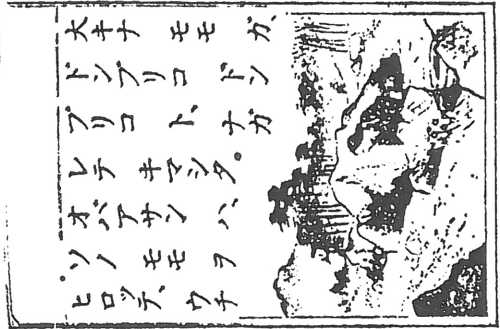 大キナ モモ ガ、
ドンブリコ ドン
ブリコ ト、 ナガ
レテ キマシタ。
オバアサン ハ、
ソノ モモ ヲ
ヒロッテ、ウチ